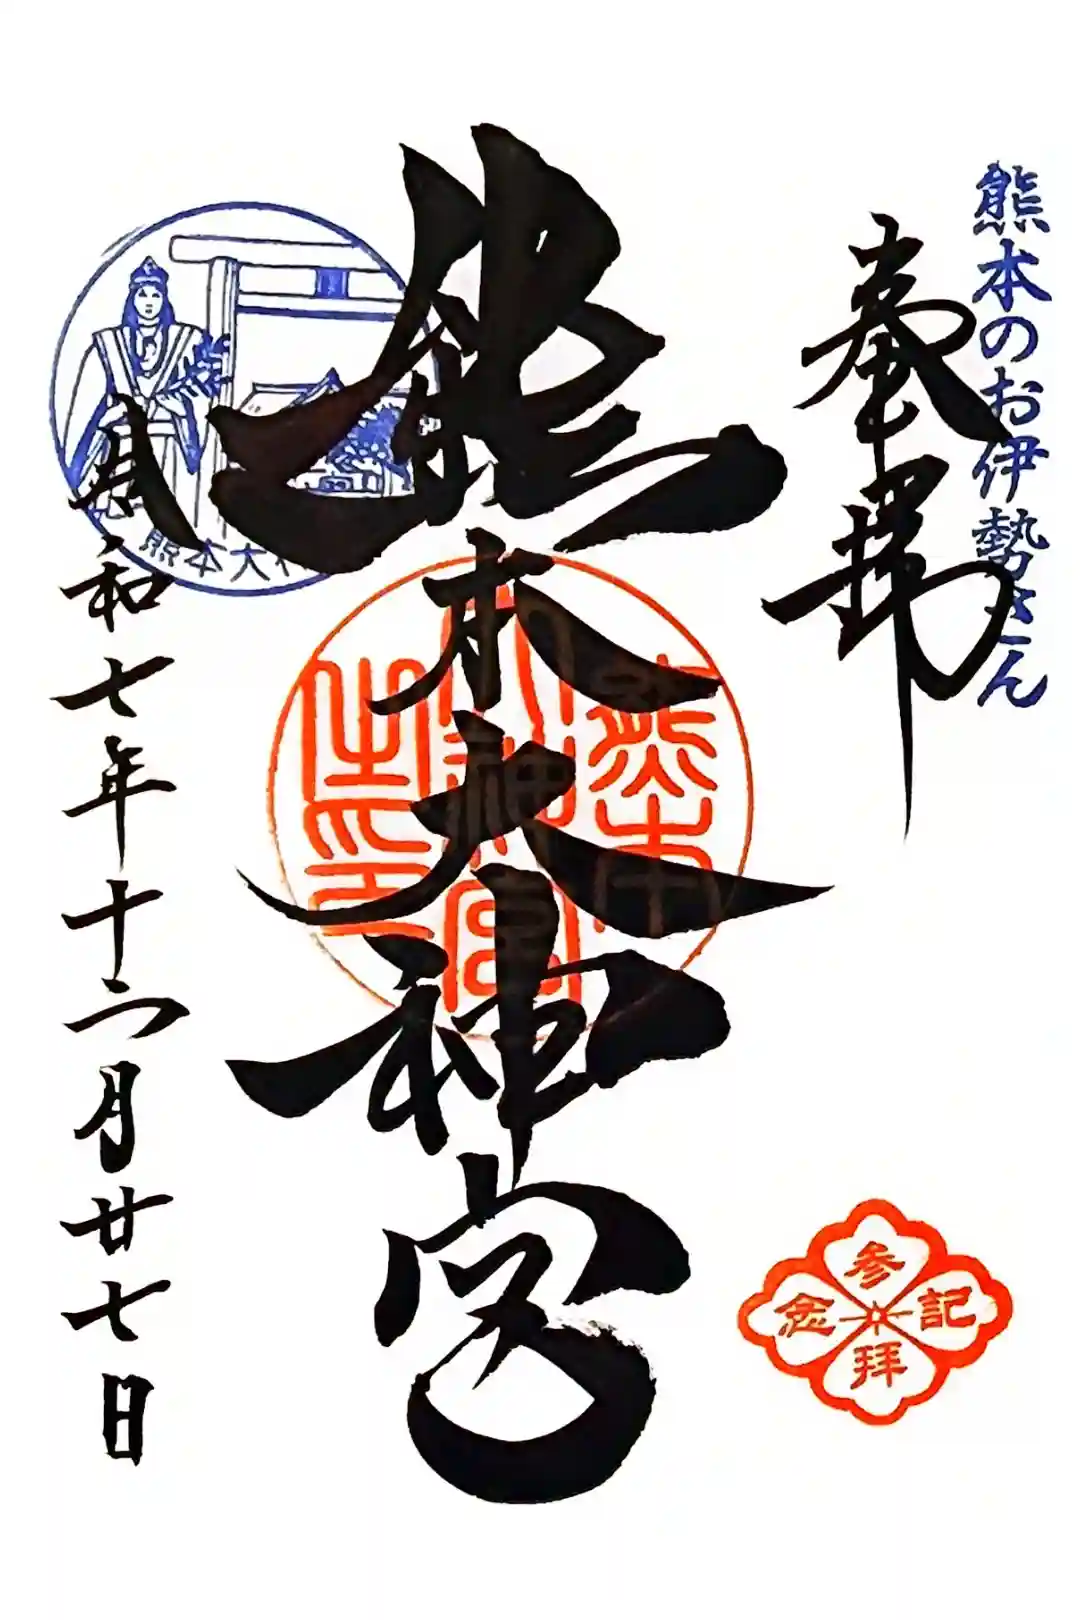 熊本のお伊勢さん
奉拝
熊本大神宮
熊本大神宮之印
熊本大神
令和七年十二月廿七日
参拝記念